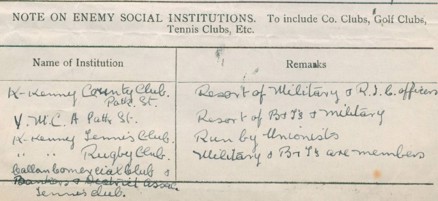 NOTE ON ENEMY SOCIAL INSTITUTIONS. To include Co. Clubs, Golf Clubs,
Tennis Clubs, Etc.
Name of Institution Remarks
K-Kenny County Club. Resort of Military & R.I.C. officers
Patk. St.
Y.M.C.A Patk St. Resort of B&Ts & Military
K-Kenny Tennis Club. Run by Unionists
" " Rugby Club. Military & B&Ts are members
Callan Comercial Club &
& District Assoc.
Tennis Club.